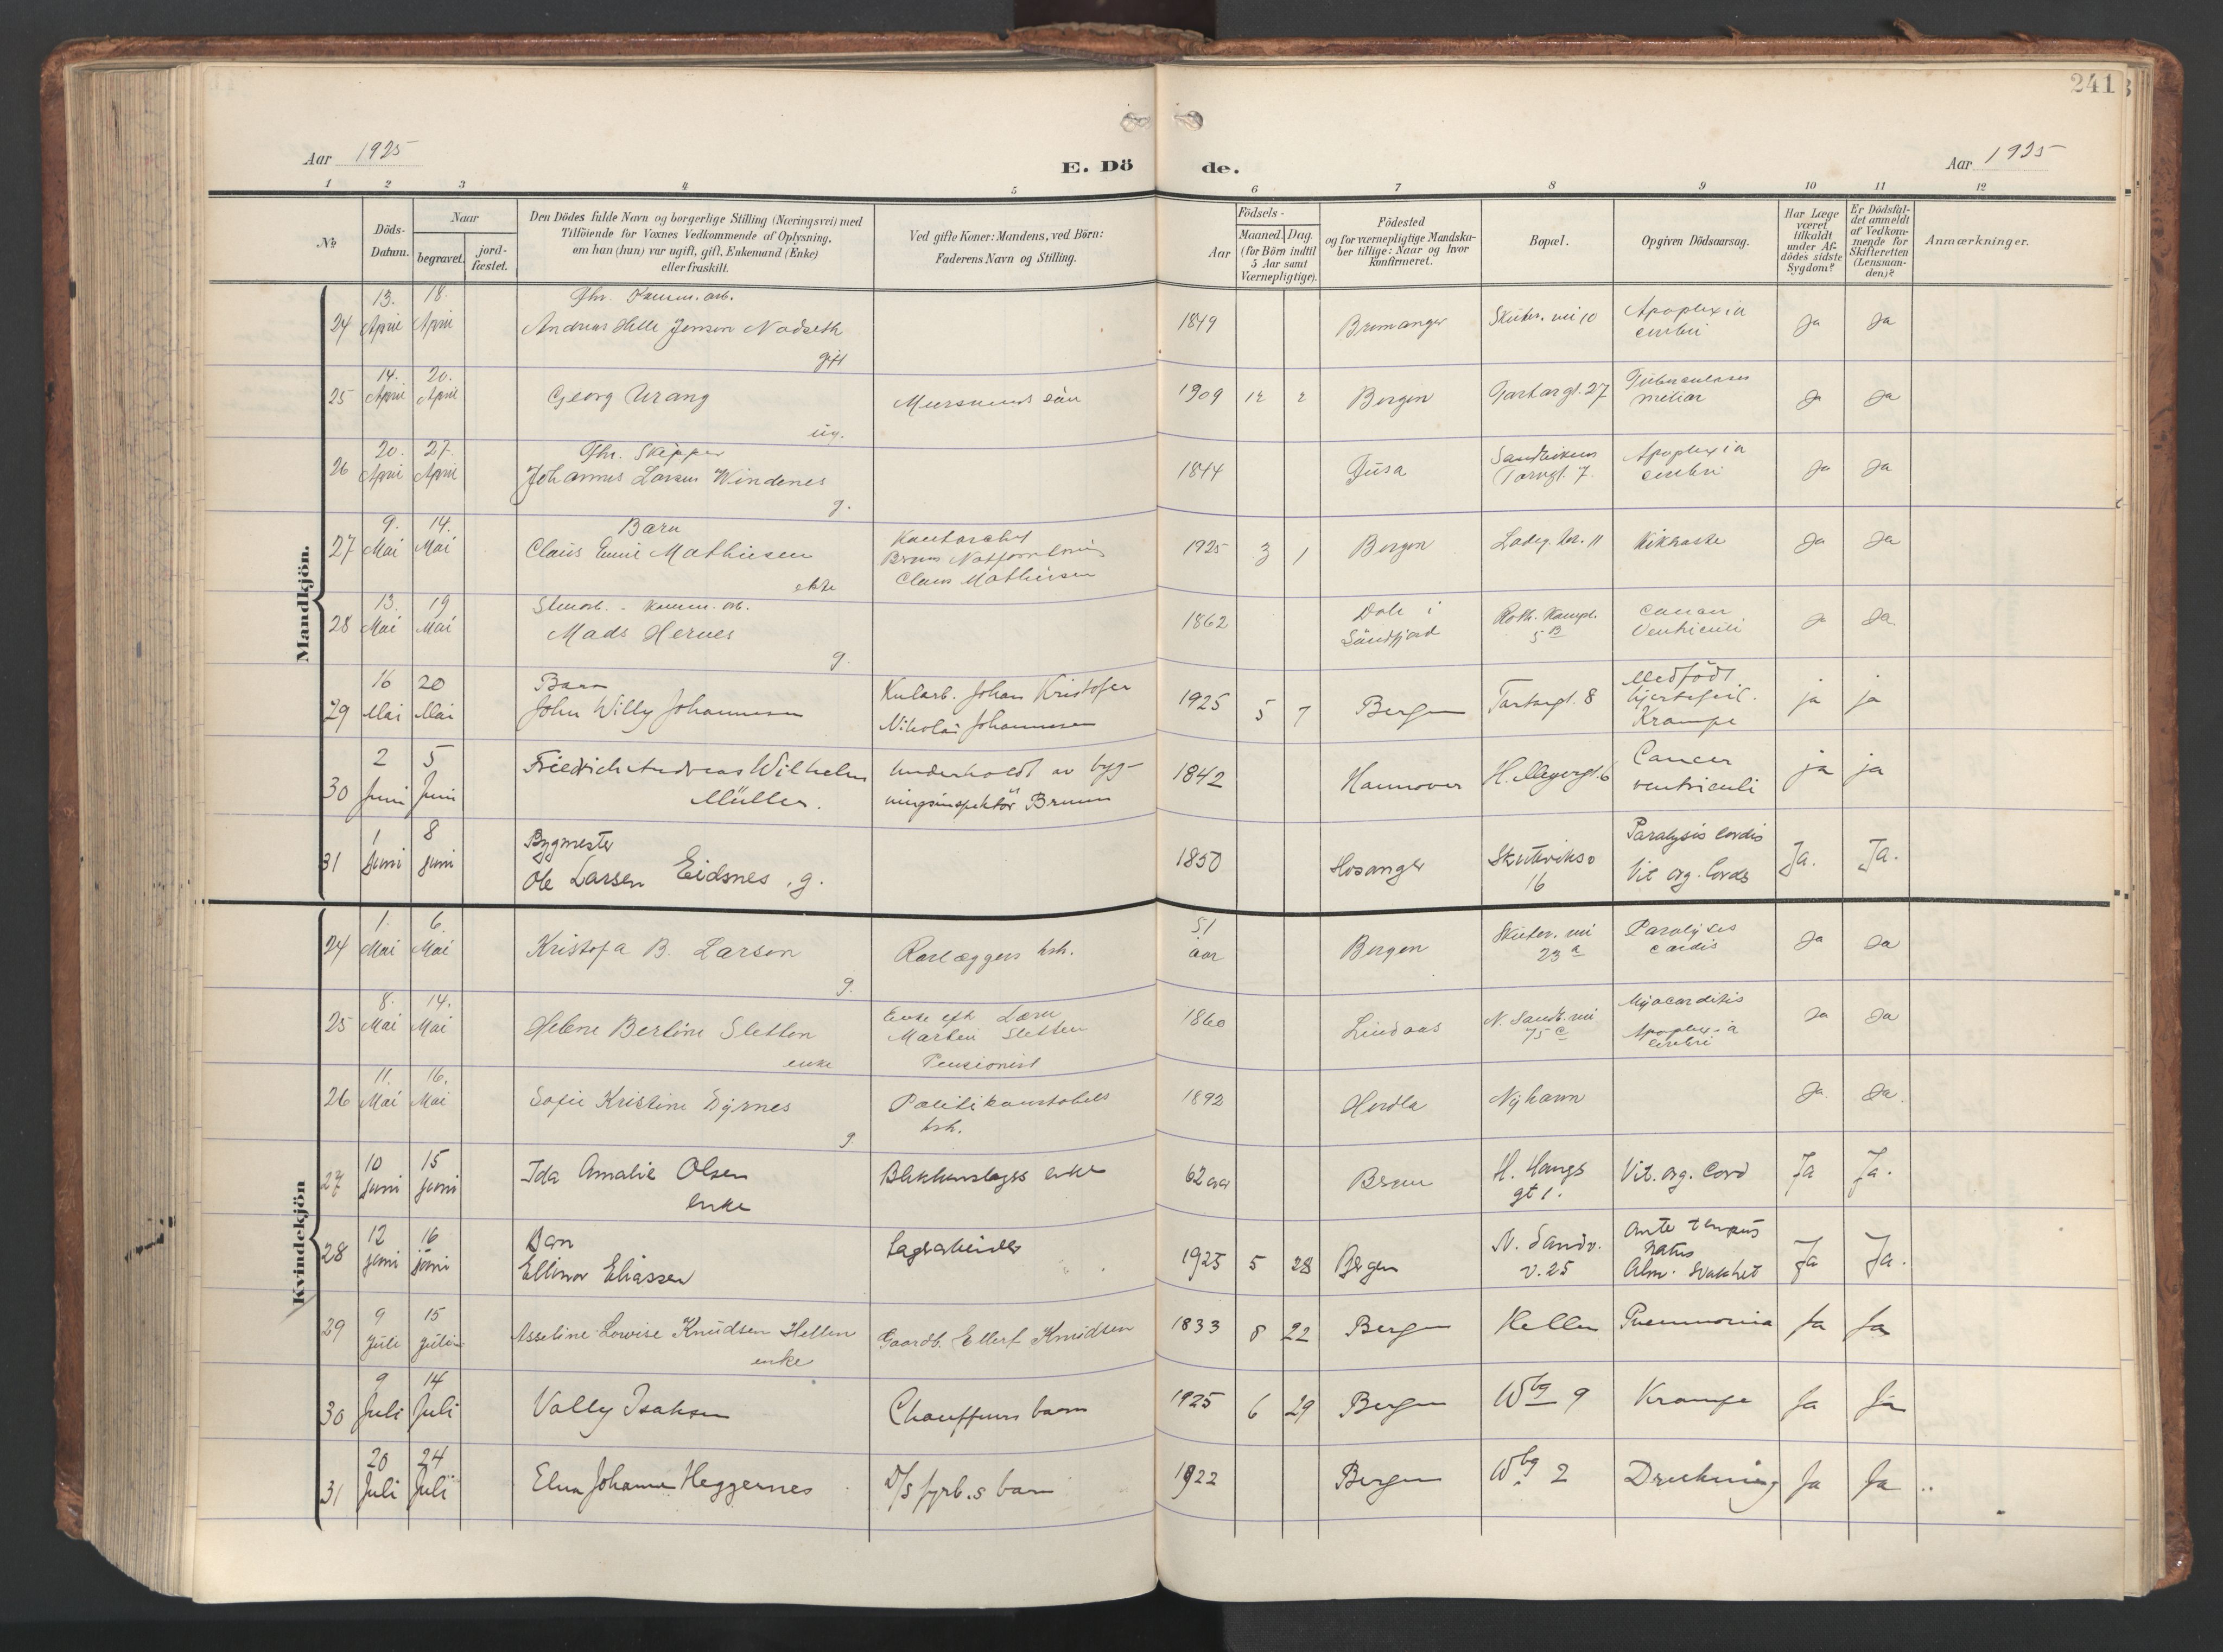 241
Aar 1925
E. Dö de.
Aar 1925
1 2 3 4 5 6 7 8 9 10 11 12
No
Döds-
Datum.
Naar
begravet.
jord-
fæstet.
Den Dödes fulde Navn og borgerlige Stilling (Næringsvei) med
Tilföiende for Voxnes Vedkommende af Oplysning,
om han (hun) var ugift, gift, Enkemand (Enke)
eller fraskilt.
Ved gifte Koner: Mandens, ved Börn:
Faderens Navn og Stilling.
Födsels-
Aar
Maaned. Dag.
(for Börn indtil
5 Aar samt
Værnepligtige).
Födested
og for værnepligtige Mandska-
ber tillige: Naar og hvor
konfirmeret.
Bopæl.
Opgiven Dödsaarsag.
Har Læge
været
tilkaldt
under Af-
dödes sidste
Sygdom?
Er Dödsfal-
det anmeldt
af Vedkom-
mende for
Skifteretten
(Lensman-
den)?
Anmærkninger.
Mandkjön.
24 13. April 18. April fhv. Komm. arb.
Andreas Helle Jensen Nodseth
gift
1849 Bremanger Skutev. vei 10 Apoplexia
cerebri
Ja Ja
25 14. April 20. April Georg Urang
ug.
Murermests sön 1909 12 2 Bergen Tartargt. 27 Tuberculosis
miliar
Ja Ja
26 20. April 27. April Fhv. Skipper
Johannes Larsen Windenes
g.
1844 Fusa Sandvikens
Torvgt. 7.
Apoplexia
cerebri
Ja Ja
27 9. Mai 14. Mai Barn
Claus Emil Mathiesen
ekte
Claus Mathiesen
1925 3 1 Bergen Ladeg. 11 Kikhoste Ja Ja
28 13. Mai 19 Mai Stenarb. - komm. arb.
Mads Hernes
g.
1862 Dale i
Söndfjord
5 B
Cancer
Ventriculi
Ja Ja.
29 16 Mai 20 Mai Barn
John Willy Johannesen
Kularb. Johan Kristofer
Nikolai Johannesen
1925 5 7 Bergen Tartargt. 8 Medfödt
hjertefeil.
Krampe
ja ja
30 2 Juni 5 Juni Friedrich Andreas Wilhelm
Müller.
Underholdt av byg-
ningsinspektör Bruun
1842 Hannover H. Meyersgt. 6 Cancer
ventriculi
ja ja
31 1 Juni 8 Juni Bygmester
Ole Larsen Eidsnes . g.
1850 Hosanger Skutevikso
16
Paralysis Cordis
Vit. org. Cordis
Ja. Ja.
Kvindekjön
24 1. Mai 6. Mai Kristofa B. Larsen
g.
Rørlæggers hsh. 51
aar
Bergen Skutev. vei
23 a
Paralyses
cordis
Ja Ja
25 8. Mai 14. Mai Helene Bertine Sletten
enke
Enke eft. Lærer
Martin Sletten
Pensionist
1860 Lindaas N. Sandv. vei
75 c
Myocarditis
Apoplexia
cerebri
Ja Ja
26 11. Mai 16. Mai Sofie Kristine Dyrnes
g.
Politikonstabels
hsh.
1892 Herdla Nyhavn Ja. Ja.
27 10 Juni 15 Juni Ida Amalie Olsen
enke
Blikkenslagers enke 62 aar H. Haugs
gt 1.
Vit. org. Cord Ja Ja.
28 12 Juni 16 Juni Barn
Ellinor Eliassen
Lagerarbeider 1925 5 28 Bergen N. Sandv.
v. 25
Ante tempus
natus
Alm. svakhet
Ja Ja.
29 9 Juli 15 Juli Asseline Lovise Knudsen Hellen
enke
Gaardb. Ellert Knudsen 1833 8 22 Bergen Hellen Pneumonia Ja Ja
30 9 Juli 14 Juli Vally Isaksen Chauffeurs barn 1925 6 29 Bergen Wbg 9 Krampe Ja Ja
31 20 Juli 24 Juli Elna Johanne Heggernes D/S fyrb.s barn 1922 Bergen Wbg 2 Drukning Ja Ja